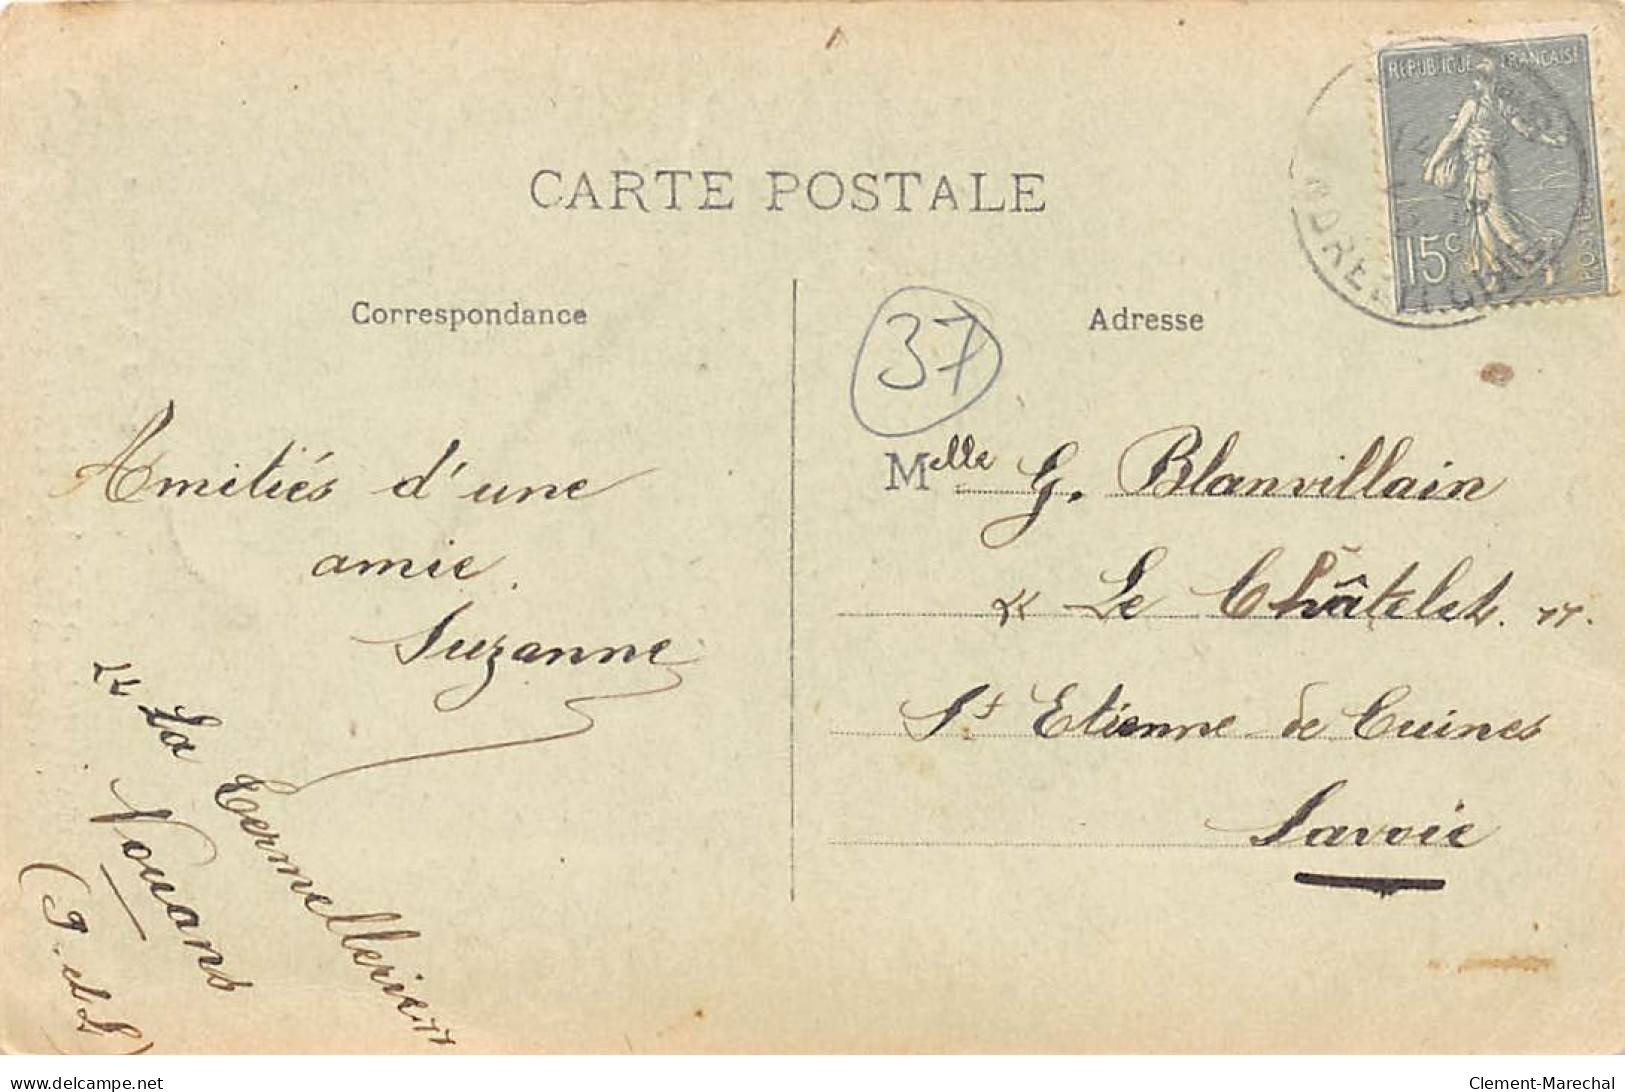 CARTE POSTALE
RÉPUBLIQUE FRANÇAISE
15c
Correspondance
Adresse
37
Amitiés d'une
amie.
Suzanne
"La Cermellerie"
Nouans
(I. et L)
Melle G. Blanvillain
"Le Châtelet".
St Etienne de Cuines
Savoie
delcampe.net
Clement-Marechal